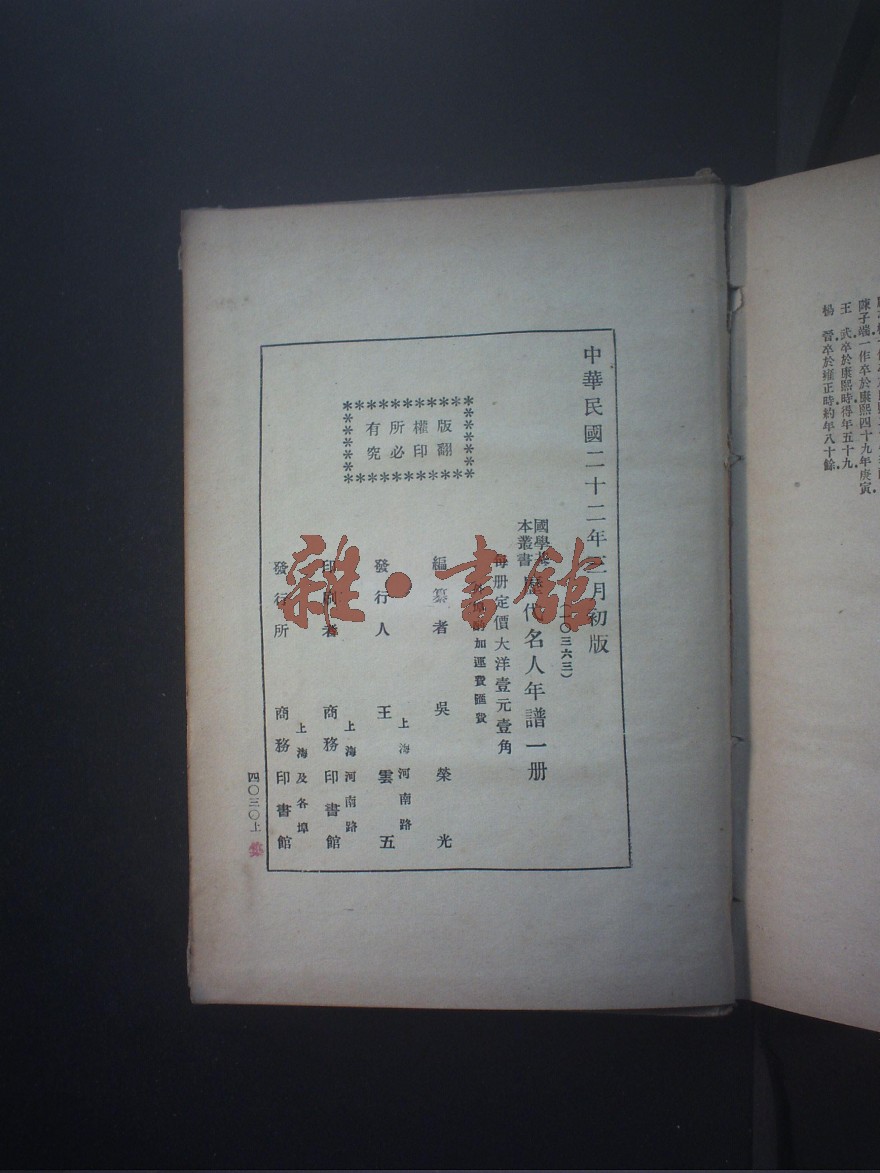 楊　晉卒於雍正時約年八十餘
王　武卒於康熙時得年五十九
陳子端一作卒於康熙四十九年庚寅
中華民國二十二年三月初版
(一〇三六三)
國學基
本叢書
歷代名人年譜一册
每册定價大洋壹元壹角
外埠酌加運費匯費
編纂者　吳榮光
發行人　王雲五
上海河南路
印刷者　商務印書館
上海河南路
發行所　商務印書館
上海及各埠
版權所有
翻印必究
四〇三〇上
雜·書館